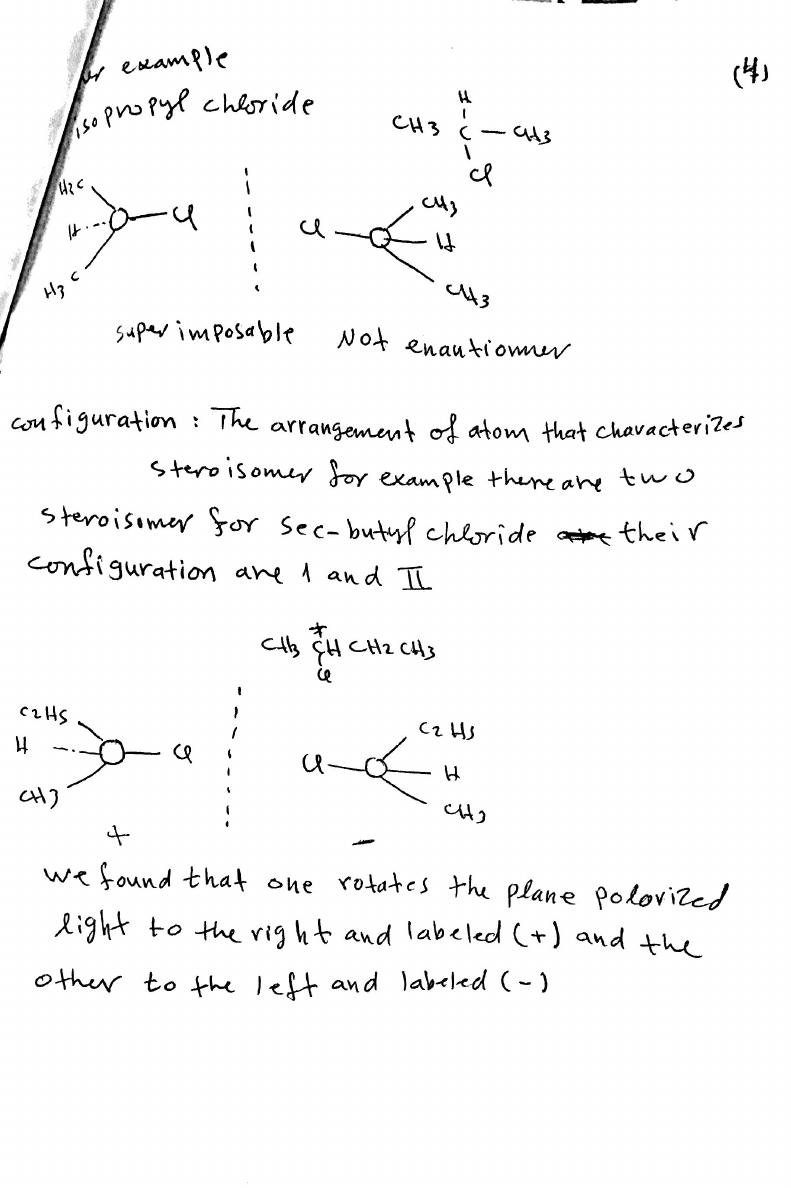 example
(4)
isopropyl chloride
H
CH3 C — CH3
Cl
H3C
H
Cl
H3C
CH3
Cl
H
CH3
superimposable Not enautiomer
configuration : The arrangement of atom that characterizes
steroisomer for example there are two
steroisomer for sec-butyl chloride their
configuration are I and II
*
CH3 CH CH2 CH3
Cl
C2H5
H
Cl
CH3
+
C2H5
Cl
H
CH3
−
we found that one rotates the plane polorized
light to the right and labeled (+) and the
other to the left and labeled (-)